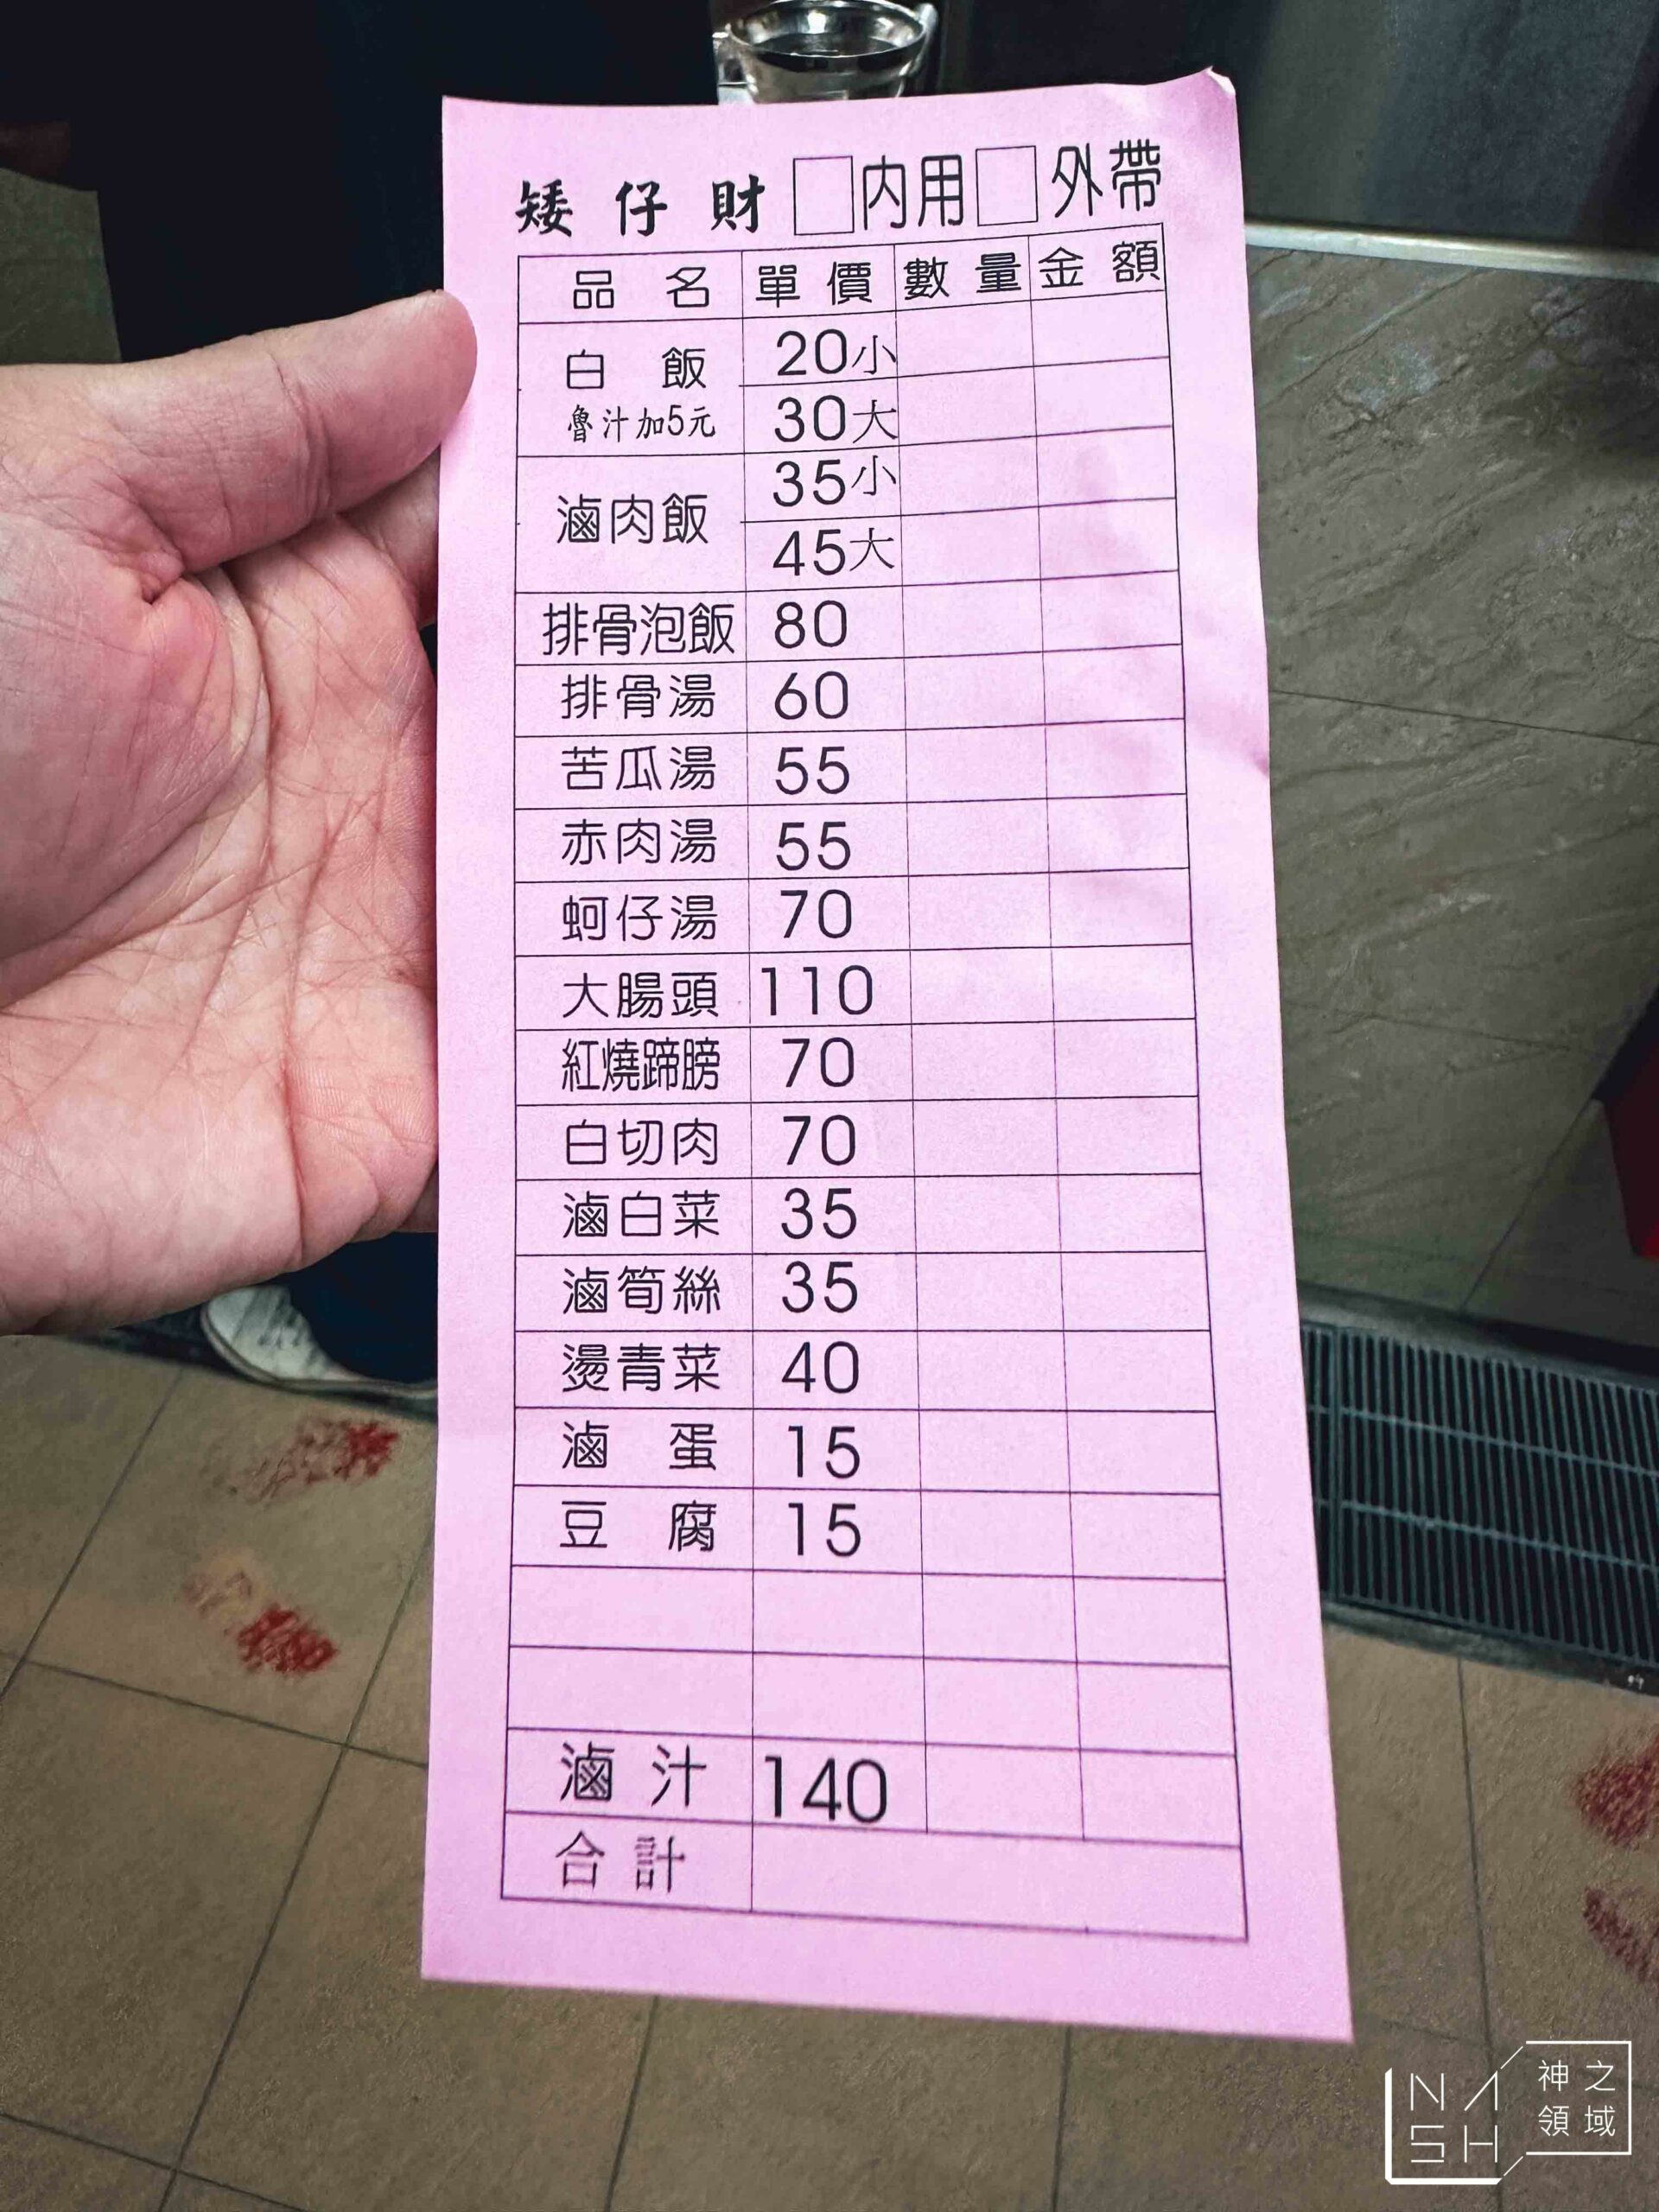 矮仔財 □內用 □外帶
品名 單價 數量 金額
白飯 20小
魯汁加5元 30大
滷肉飯 35小
45大
排骨泡飯 80
排骨湯 60
苦瓜湯 55
赤肉湯 55
蚵仔湯 70
大腸頭 110
紅燒蹄膀 70
白切肉 70
滷白菜 35
滷筍絲 35
燙青菜 40
滷蛋 15
豆腐 15
滷汁 140
合計
NASH 神之領域